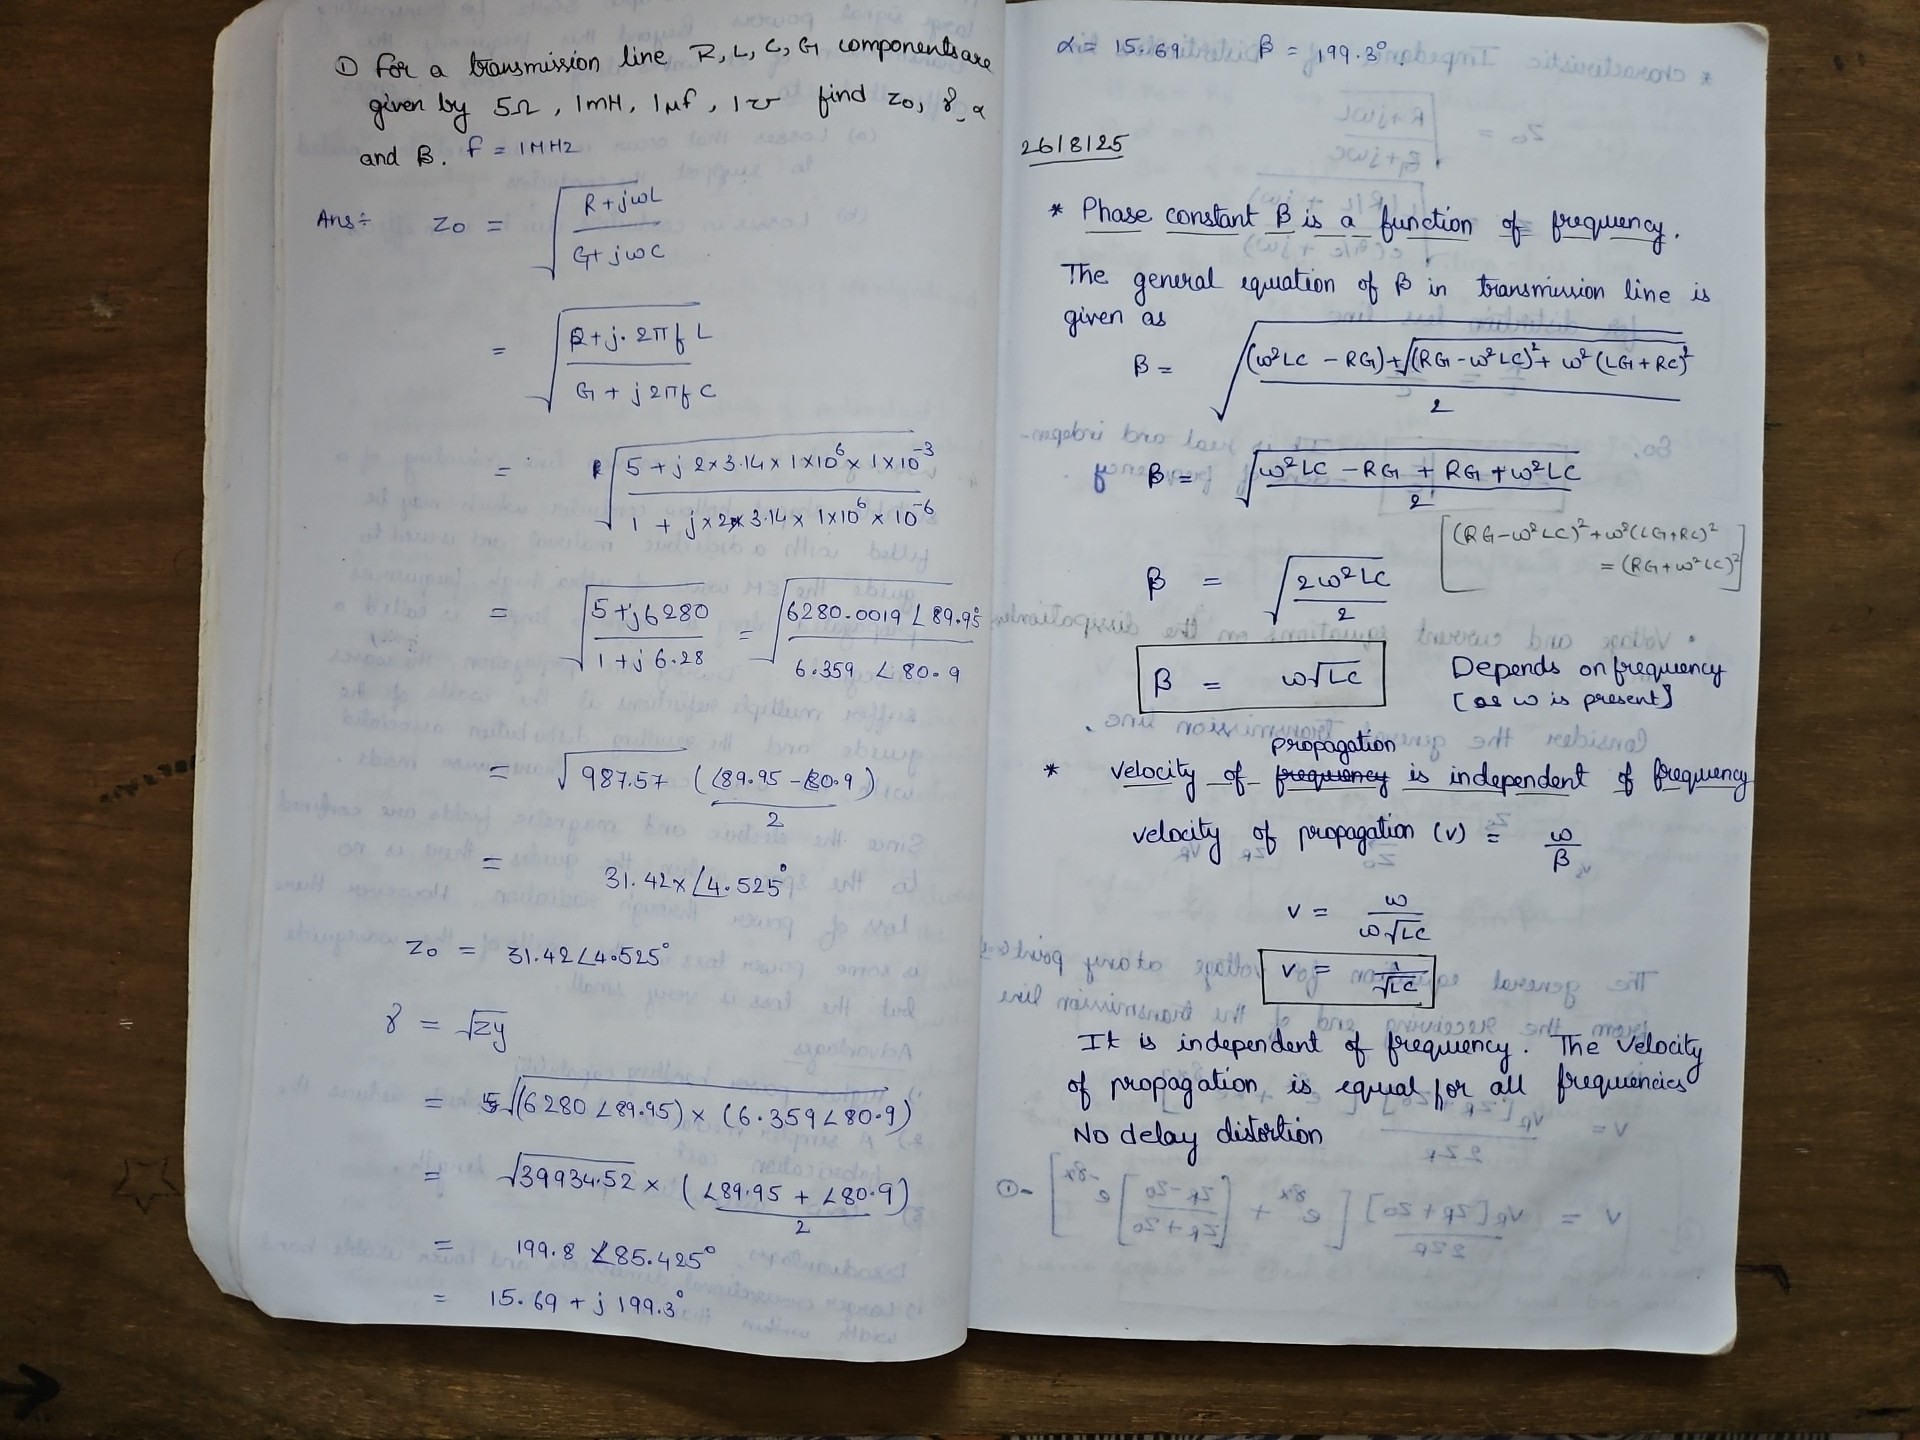 ① For a transmission line R, L, C, G components are
given by 5Ω, 1mH, 1μf, 1℧ find Zo, γ, α
and β. f = 1MHz
Ans÷ Zo = √((R+jωL)/(G+jωC))
= √((R+j.2πfL)/(G+j2πfC))
= √((5+j2×3.14×1×10⁶×1×10⁻³)/(1+j×2×3.14×1×10⁶×10⁻⁶))
= √((5+j6280)/(1+j6.28)) = √((6280.0019∠89.95°)/(6.359∠80.9))
= √987.57 (∠89.95-80.9)/2
= 31.42×∠4.525°
Zo = 31.42∠4.525°
γ = √zy
= √((6280∠89.95)×(6.359∠80.9))
= √39934.52 × (∠89.95+∠80.9)/2
= 199.8∠85.425°
= 15.69 + j199.3°
α = 15.69 β = 199.3°.
26/8/25
* Phase constant β is a function of frequency.
The general equation of β in transmission line is
given as
β = √(((ω²LC-RG)+√((RG-ω²LC)²+ω²(LG+RC)²))/2)
β = √((ω²LC-RG+RG+ω²LC)/2)
[(RG-ω²LC)²+ω²(LG+RC)²
= (RG+ω²LC)²]
β = √(2ω²LC/2)
β = ω√LC Depends on frequency
[as ω is present]
propagation
* velocity of frequency is independent of frequency
velocity of propagation (v) = ω/β
v = ω/(ω√LC)
v = 1/√LC
It is independent of frequency. The Velocity
of propagation is equal for all frequencies
No delay distortion